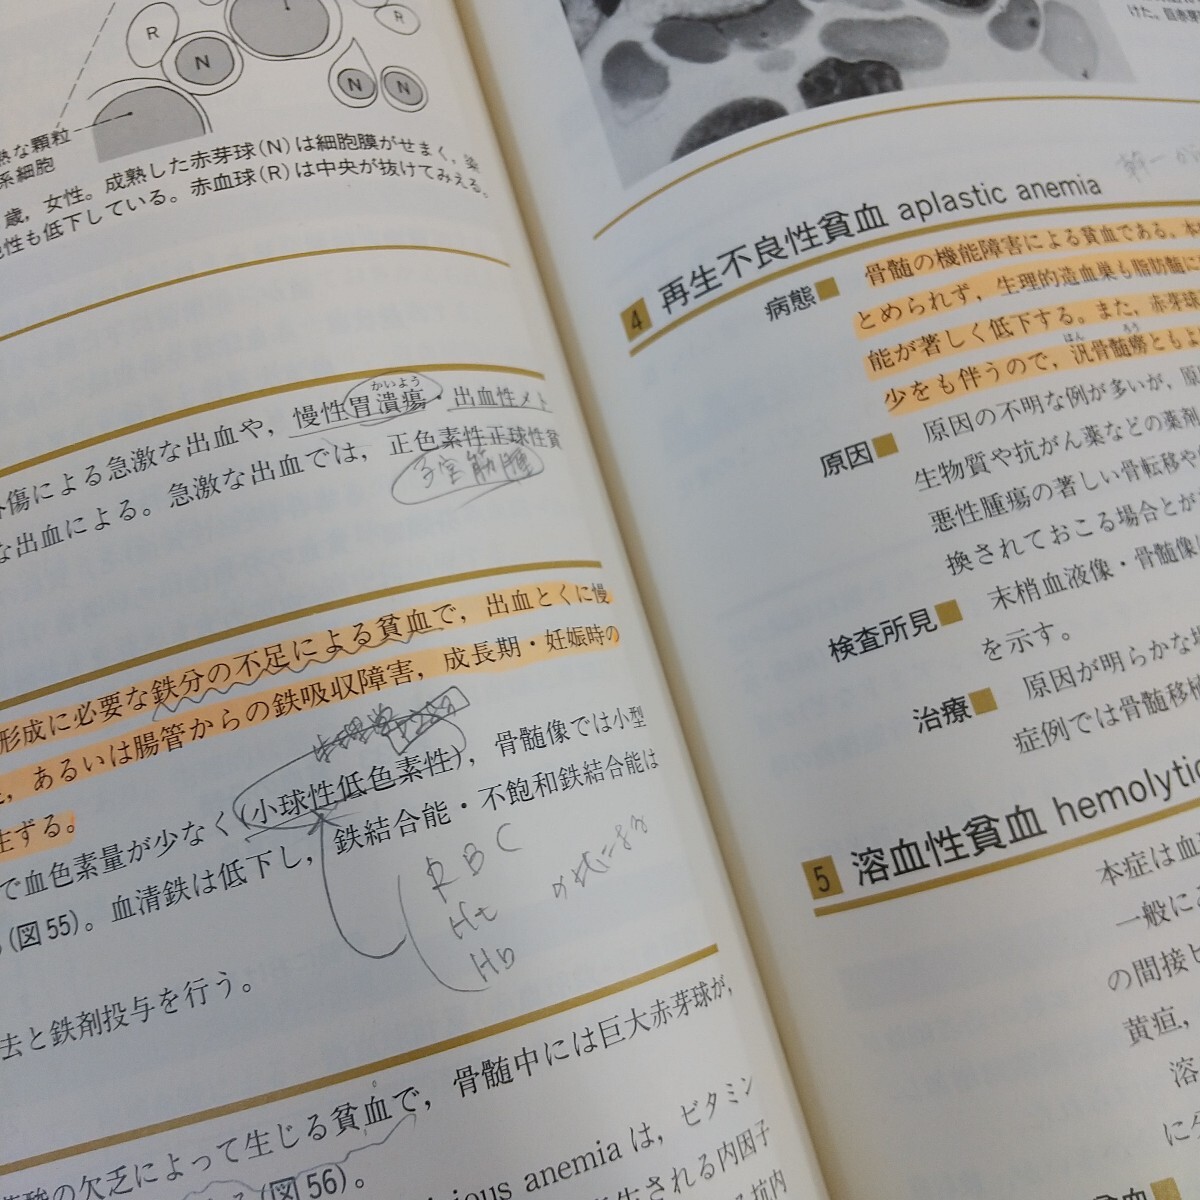 R
N
R
N
N
熟な顆粒
系細胞
歳，女性。成熟した赤芽球(N)は細胞膜がせまく，染
色性も低下している。赤血球(R)は中央が抜けてみえる。
外傷による急激な出血や，慢性胃潰瘍・出血性メト
かいよう
な出血による。急激な出血では，正色素性正球性貧
子宮筋腫
形成に必要な鉄分の不足による貧血で，出血とくに慢
，あるいは腸管からの鉄吸収障害，成長期・妊娠時の
生ずる。
で血色素量が少なく(小球性低色素性)，骨髄像では小型
(図55)。血清鉄は低下し，鉄結合能・不飽和鉄結合能は
RBC
Ht
Hb
去と鉄剤投与を行う。
酸の欠乏によって生じる貧血で，骨髄中には巨大赤芽球が，
(図56)。
ious anemiaは，ビタミン
生される内因子
抗内
けた。
4 再生不良性貧血 aplastic anemia
病態■ 骨髄の機能障害による貧血である。
とめられず，生理的造血巣も脂肪髄に
能が著しく低下する。また，赤芽球
はん ろう
少をも伴うので，汎骨髄癆ともよ
原因■ 原因の不明な例が多いが，原
生物質や抗がん薬などの薬剤
悪性腫瘍の著しい骨転移や
換されておこる場合とが
検査所見■ 末梢血液像・骨髄像
を示す。
治療■ 原因が明らかな場
症例では骨髄移植
5 溶血性貧血 hemolytic
本症は血
一般に
の間接ビ
黄疸，
溶
に
血■